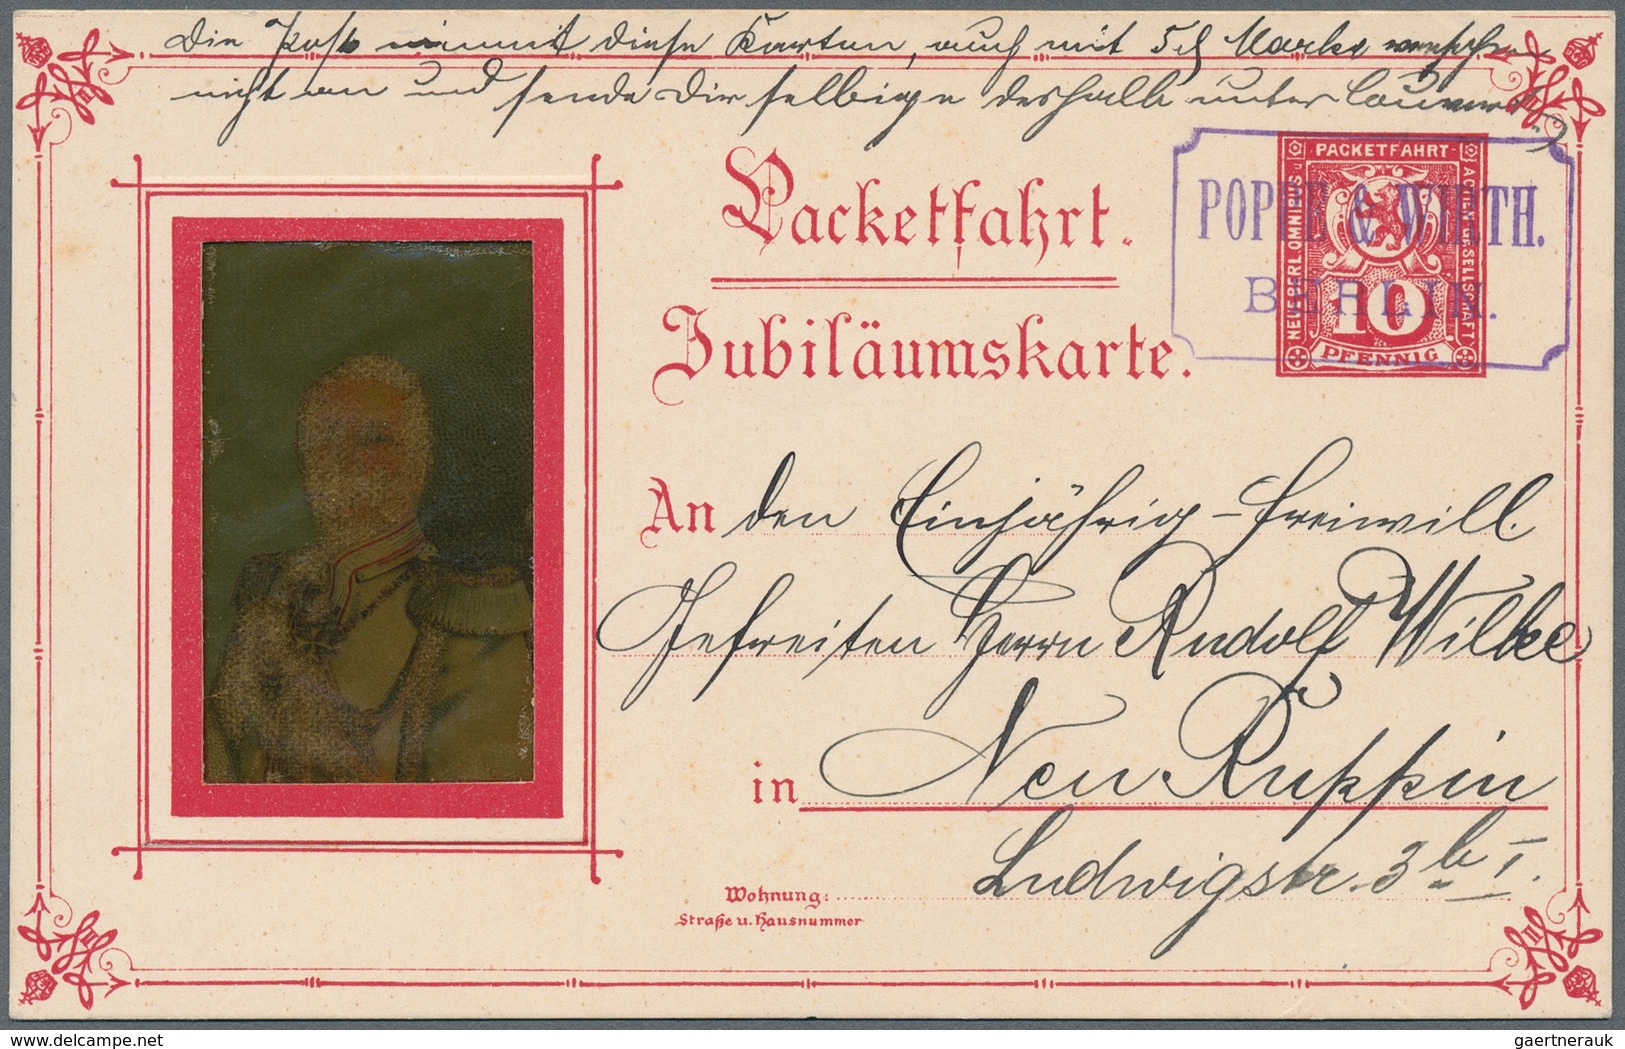 Die Post nimmt diese Karten, auch mit 5 d Marke versehen
nicht an und sende Dir selbige deshalb unter Couvert.)
PACKETFAHRT-
NEUE BERL. OMNIBUS U.
ACTIEN GESELLSCHAFT
10
PFENNIG
POPPE & WIRTH.
BERLIN.
Packetfahrt.
Jubiläumskarte.
An den Einjährig-Freiwill.
Gefreiten Herrn Rudolf Wilke
in Neu Ruppin
Ludwigstr. 3b I.
Wohnung:
Straße u. Hausnummer
delcampe.net
gaertnerauk